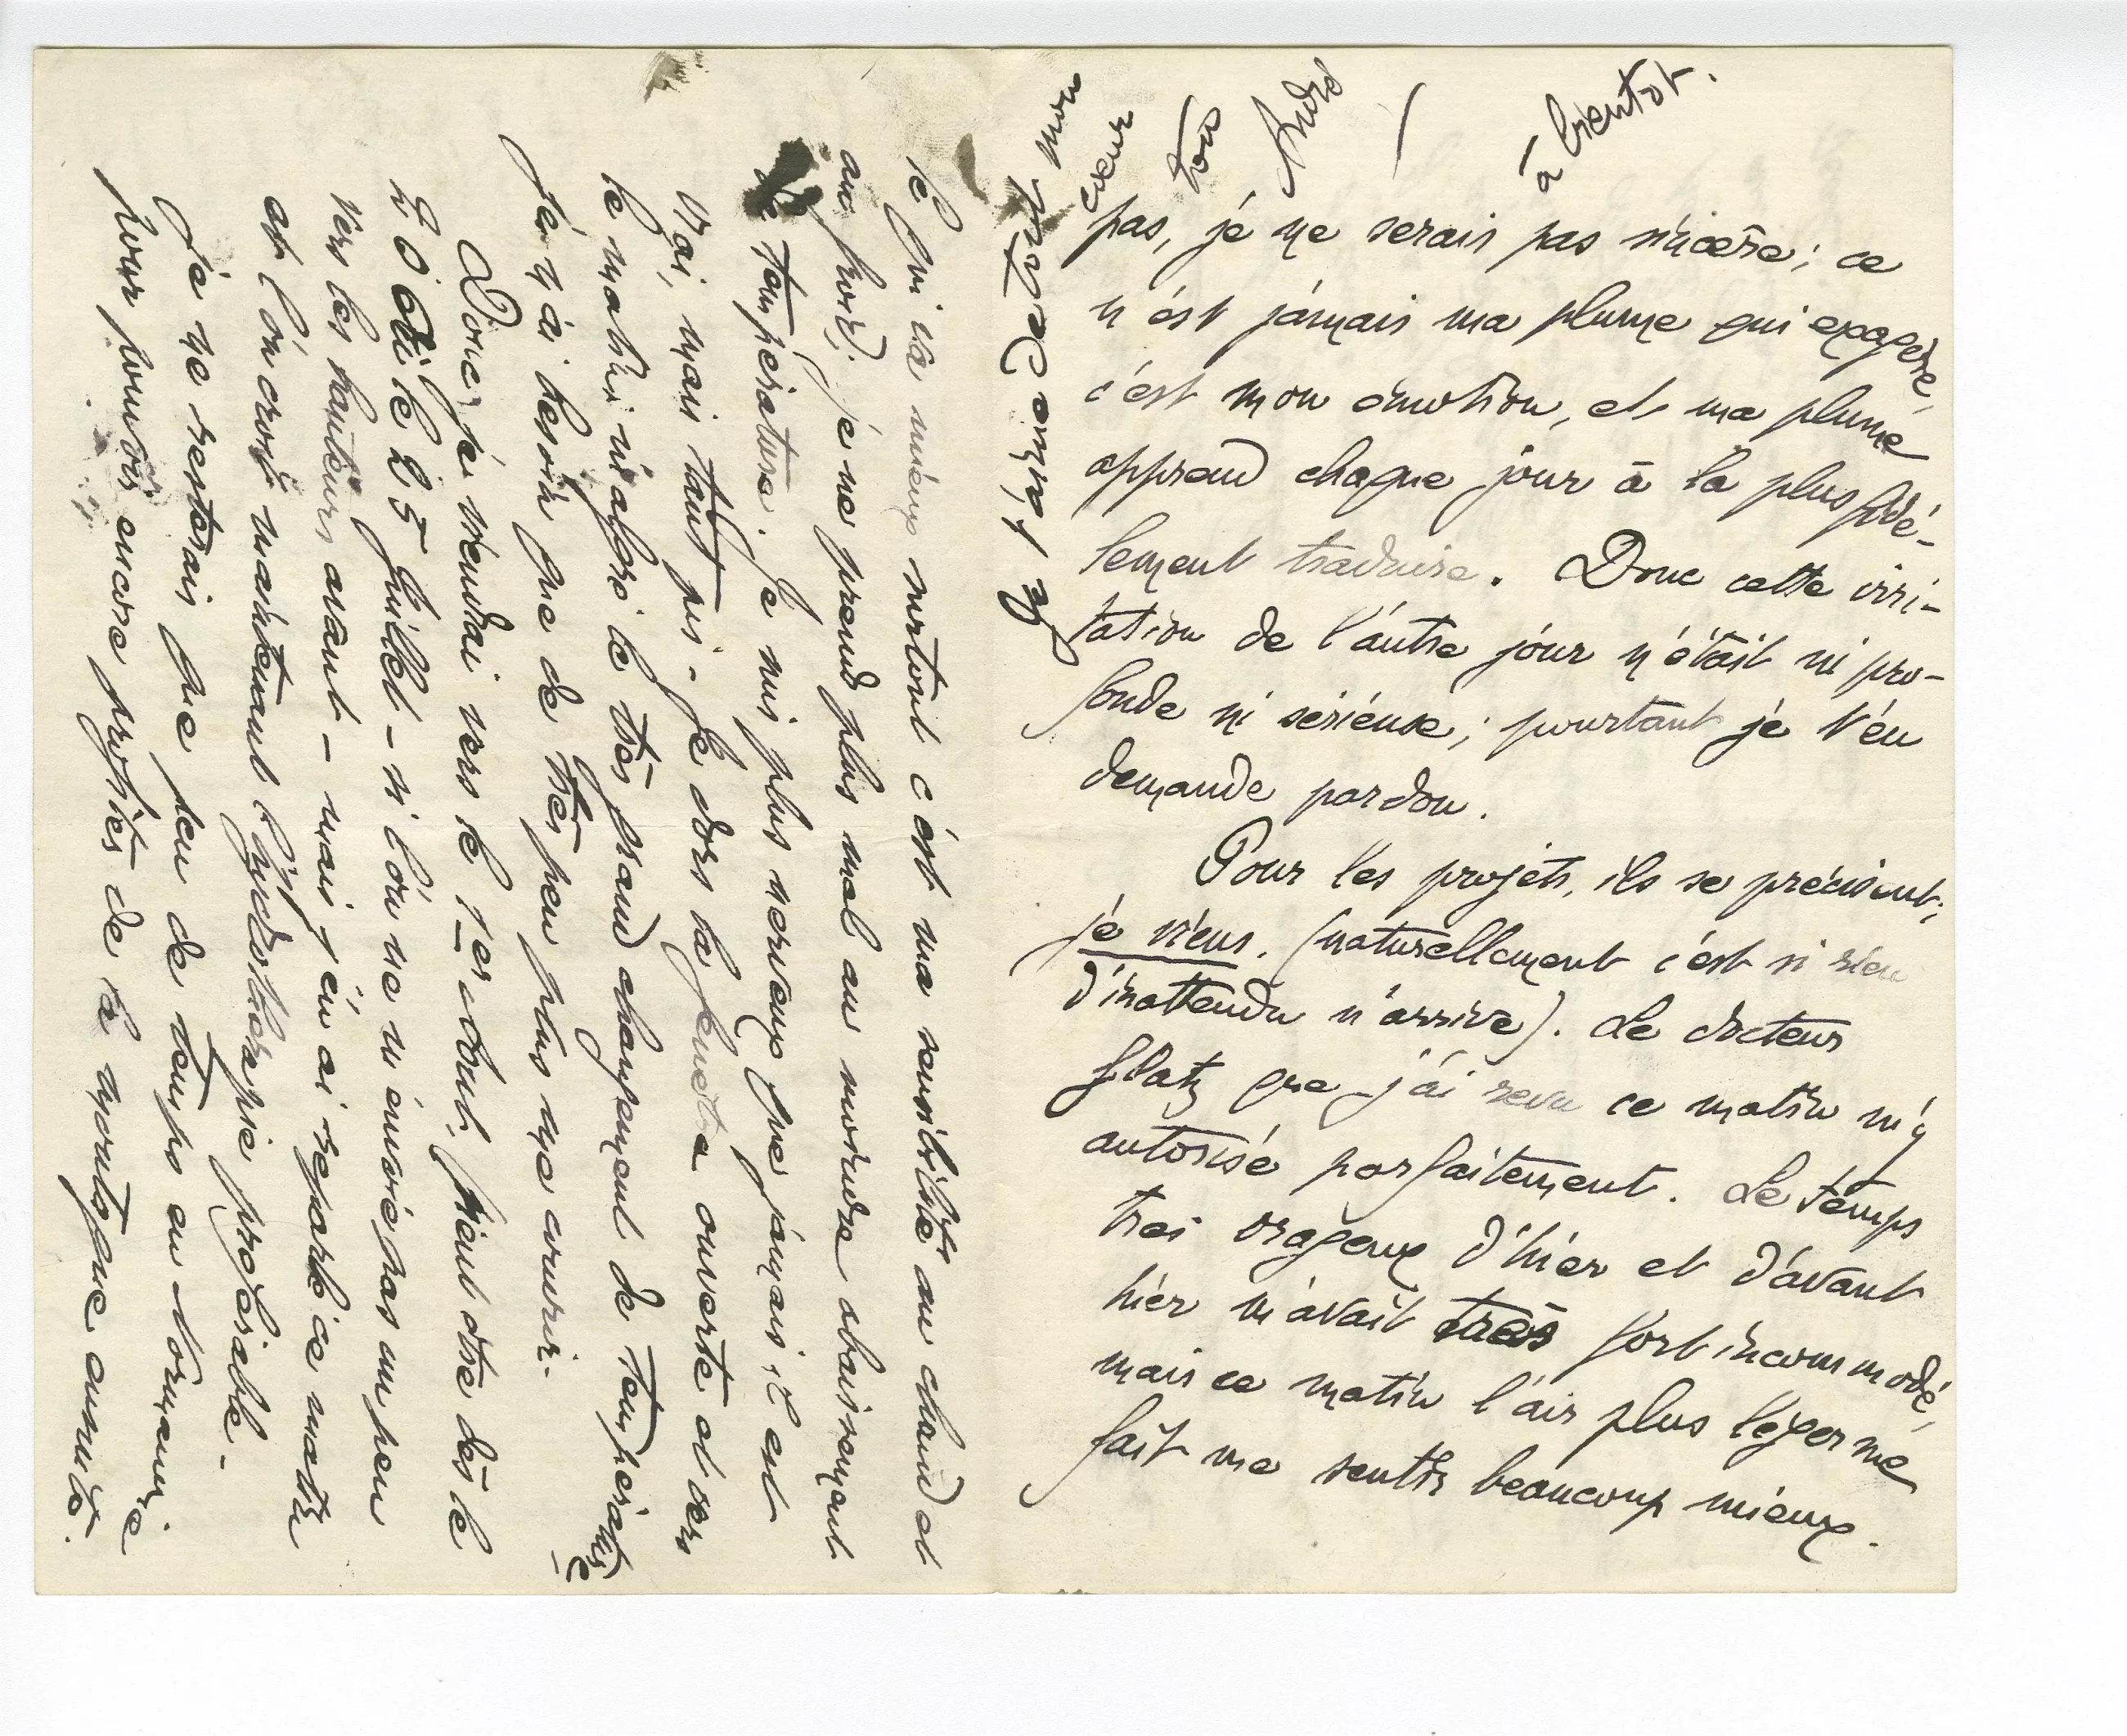 pas, je ne serais pas sincère; ce
n'est jamais ma plume qui exagère,
c'est mon émotion, et ma plume
apprend chaque jour à la plus fidè-
lement traduire. Donc cette irri-
tation de l'autre jour n'était ni pro-
fonde ni sérieuse; pourtant je t'en
demande pardon.
Pour les projets, ils se précisent;
je viens. (naturellement c'est si rien
d'inattendu n'arrive). Le docteur
que j'ai revu ce matin m'y
autorise parfaitement. Le temps
très orageux d'hier et d'avant
hier m'avait très fort incommodé,
mais ce matin l'air plus léger me
fait me sentir beaucoup mieux.
Ce qui va mieux surtout c'est ma sensibilité au chaud et
au froid; je ne prends plus mal au moindre abaissement
de température. Je suis plus nerveux que jamais, il est
vrai, mais tant pis - Je dors la fenêtre ouverte et vers
le matin, malgré le très grand changement de température
je n'ai besoin que de très peu plus me couvrir.
Donc je viendrai vers le 1er Août, peut être dès le
20 ou le 25 Juillet - si l'on ne m'envoie pas un peu
vers les hauteurs avant - mais j'en ai reparlé ce matin
et l'on croit maintenant l'hydrothérapie préférable.
Je ne resterais que peu de temps en Normandie
pour pouvoir encore profiter de la montagne ensuite.
Je t'aime et
mon
cœur
ton
André
à bientôt.